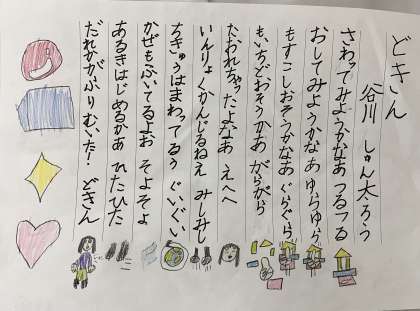 どきん
谷川 しゅん太ろう
さわってみようかなあ つるつる
おしてみようかなあ ゆらゆら
もすこしおそうかなあ ぐらぐら
もいちどおそうかあ がらがら
たおれちゃったよなあ えへへ
いんりょくかんじるねえ みしみし
ちきゅうはまわってるう ぐいぐい
かぜもふいてるよお そよそよ
あるきはじめるかあ ひたひた
だれかがふりむいた! どきん